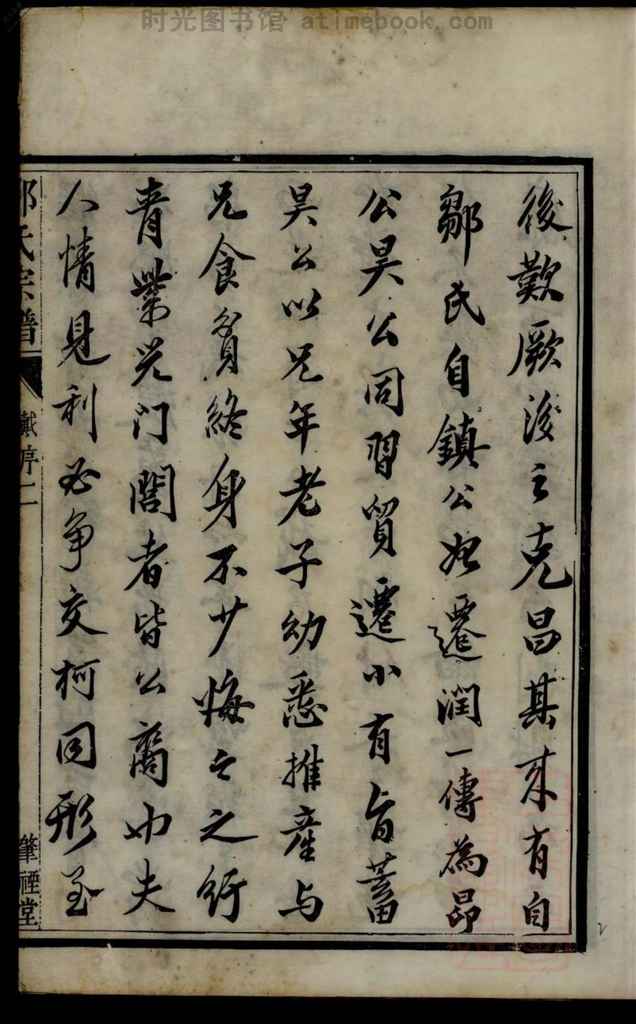 时光图书馆 atimebook.com
後歎厥後之克昌其来有自
鄒氏自鎮公始遷潤一傳為昂
公昊公同習貿遷小有旨蓄
昊公以兄年老子幼悉推産与
兄食貧終身不少悔之之行
青業光门閭者皆公裔也夫
人情見利必争交柯同形至
鄒氏宗譜
戴序二
筆經堂